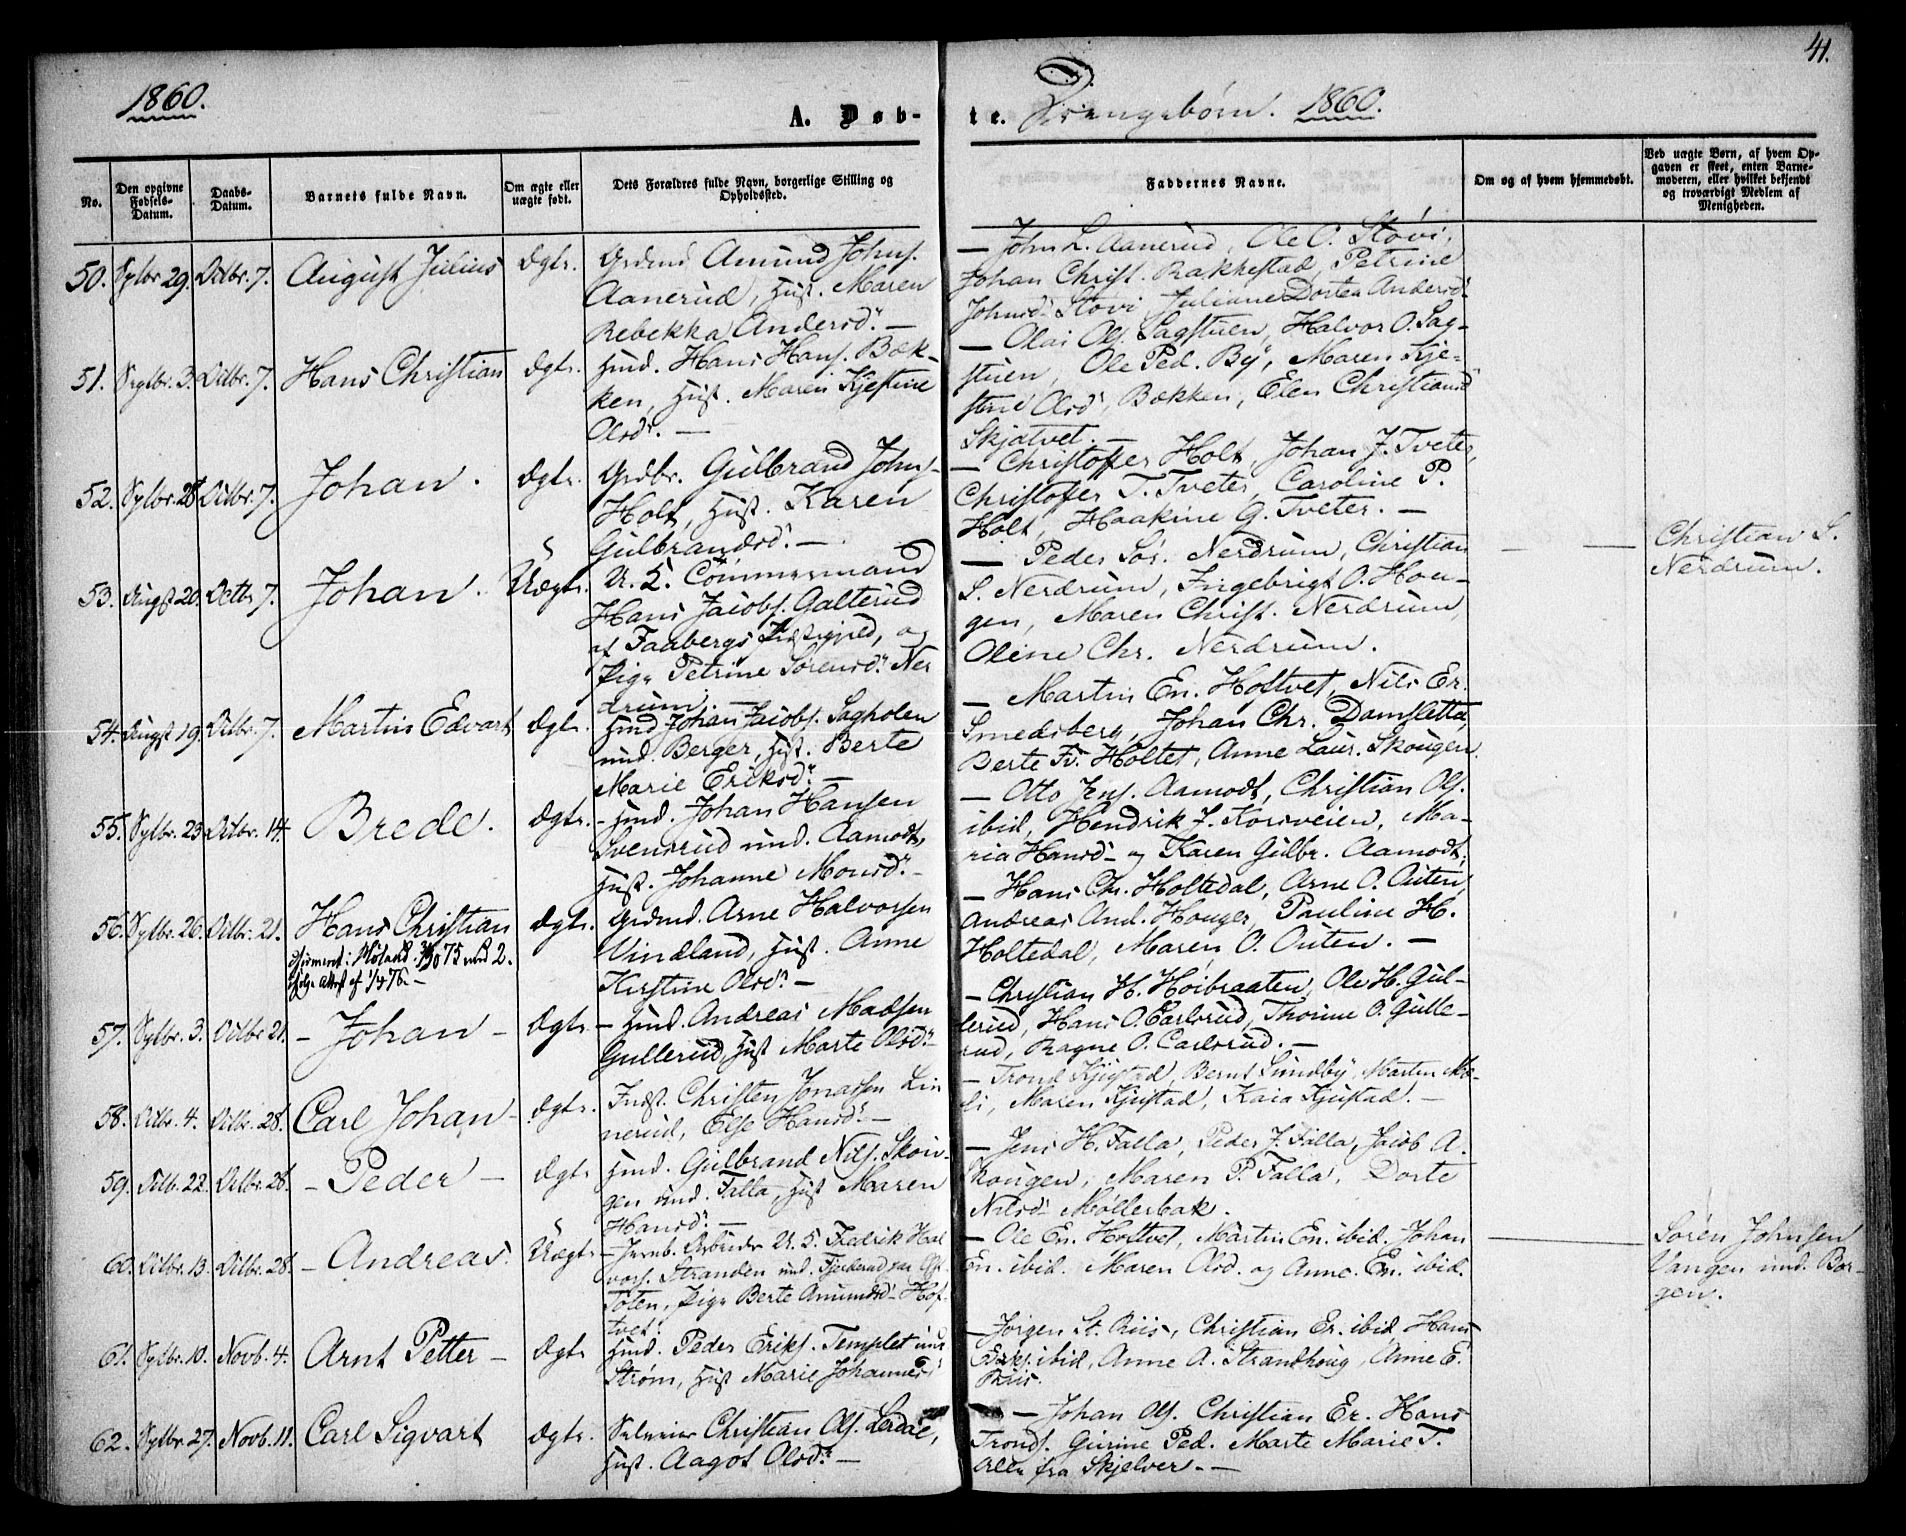 41.
1860.
A. Døb-
te. Drengebørn. 1860.
No.
Den opgivne Fødsels-Datum.
Daabs-Datum.
Barnets fulde Navn.
Om ægte eller uægte født.
Dets Forældres fulde Navn, borgerlige Stilling og Opholdssted.
Faddernes Navne.
Om og af hvem hjemmedøbt.
Ved uægte Børn, af hvem Opgaven er skeet, enten Barnemoderen, eller hvilket bekjendt og troværdigt Medlem af Menigheden.
50. Septbr 29. Octbr. 7. August Julius Ægte.
Grdmd Amund Johns.
Aanerud, Hust. Maren
Rebekka Andersd. —
— John L. Aanerud, Ole O. Støvi,
Johan Christ. Rakkestad, Petrine
Johnsd. Støvi, Juliane Dortea Andersd.
51. Septbr. 3. Octbr. 7. Hans Christian Ægte.
Husmd. Hans Hans. Bæk-
ken, Hust. Maren Kjestine
Olsd. —
— Olai Ols. Sagstuen, Halvor O. Sag-
stuen, Ole Ped. By, Maren Kje-
stine Olsd. Bækken, Elen Christiansd
Skjatvet. —
52. Septbr. 28 Octbr. 7. Johan. Ægte.
Grdbr. Gulbrand Johns.
Holt, Hust. Karen
Gulbrandsd. —
— Christoffer Holt, Johan J. Tveter,
Christoffer T. Tveter, Caroline P.
Holt, Haakine G. Tveter. —
53. August 20. Octbr 7. Johan. Uægte.
U. K. Commermand
Hans Jacobs. Aalterud
af Faabergs Præstegjeld, og
Pige Petrine Sørensd. Ner
drum. —
— Peder Sør. Nerdrum, Christian
S. Nerdrum, Ingebrigt O. Hou-
gen, Maren Christ. Nerdrum,
Oline Chr. Nerdrum.
Christian S.
Nerdrum.
54. August 19. Octbr. 7. Martin Edvart Ægte.
Husmd Johan Jacobs. Sagholen
und. Berger, Hust. Berte
Marie Eriksd. —
— Martin En. Hoftvet, Nils Er.
Smedsberg, Johan Chr. Damsletta,
Berte Fr. Holtet, Anne Laur. Skougen.
55. Septbr. 23. Octbr. 14. Brede. Ægte.
— Husmd. Johan Hansen
Svensrud und. Aamodt,
Hust. Johanne Monsd. —
— Otto Jens. Aamodt, Christian Ols.
ibid, Hendrik J. Korsveien, Ma-
ria Hansd. og Karen Gulbr. Aamodt.
56. Septbr. 26. Octbr. 21. Hans Christian Ægte.
Grdmd. Arne Halvorsen
Vindland, Hust. Anne
Kirstine Olsd. —
— Hans Chr. Holtedal, Arne O. Outen,
Andreas And. Houger, Pauline H.
Holtedal, Maren O. Outen. —
57. Septbr. 3. Octbr 21. — Johan — Ægte.
— Husmd. Andreas Madsen
Gullerud, Hust Marte Olsd. —
— Christian H. Høibraaten, Ole H. Gul-
lerud, Hans O. Carlsrud, Thorine O. Gulle-
rud, Ragne O. Carlsrud. —
58. Octbr. 4. Octbr. 28. Carl Johan — Ægte.
Indst. Christen Jonassen Lin
nerud, Else Hansd. —
— Trond Kjustad, Bernt Sundby, Marten Mo-
li, Maren Kjustad, Kaia Kjustad. —
59. Octb. 22. Octbr. 28. — Peder — Ægte
Husmd. Gulbrand Nils. Skou-
gen und. Falla, Hust Maren
Hansd. —
— Jens H. Falla, Peder J. Falla, Jacob A.
Skougen, Maren P. Falla, Dorte
Nilsd. Møllerbak.
60. Octbr. 13. Octbr. 28. — Andreas. Uægte
— Jernb. Arbeider U. K. Fredrik Hal
vors. Stranden und. Fjerderud paa Øst
Toten, Pige Berte Amundsd. Hof-
tvet.
— Ole En. Hoftvet, Martin En. ibid. Johan
En. ibid. Maren Olsd. og Anne. En. ibid.
Søren Johnsen
Vangen und. Bor-
gen.
61. Septbr. 10. Novb. 4. Arnt Petter — Ægte
Husmd. Peder Eriks. Templet und
Strøm, Hust Marie Johannesd
— Jørgen St. Riis, Christian Er. ibid, Hans
Eriks. ibid, Anne A. Strandhoug, Anne E.
Riis.
62. Septbr. 27. Novb. 11. Carl Sigvart Ægte.
Selveier Christian Ols. Lerdal,
Hust. Aagot Olsd. —
— Johan Ols. Christian Er. Hans
Tronds. Gurine Ped. Marte Marie T.
Alle fra Skjelver. —